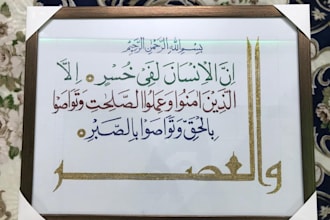 بسم الله الرحمن الرحيم
والعصر
إن الإنسان لفي خسر إلا
الذين آمنوا وعملوا الصلحت وتواصوا
بالحق وتواصوا بالصبر